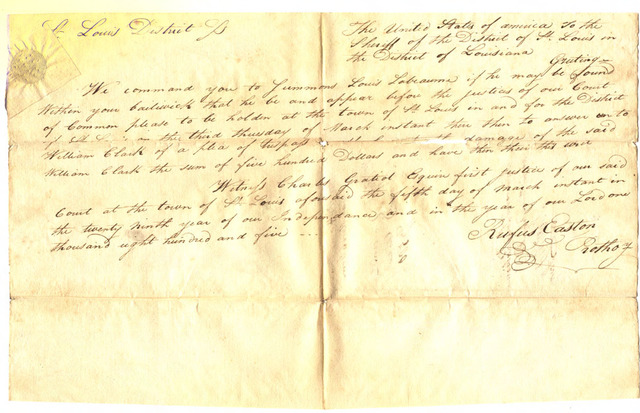 St. Louis District Ss
The United States of america To the
Sheriff of the District of St. Louis in
the District of Louisiana Greting
We command you to Summons Louis Labeaume if he may be found
Within your bailwick that he be and appear before the justices of our Court
of Common pleas to be holden at the town of St Louis in and for the District
in the third thursday of March instant then then to answer unto
William Clark of a plea of Trespass the damage of the said
William Clark the sum of five hundred Dollars and have then their this writ
Witness Charles Gratiot Esquire first justice of our said
Court at the town of St Louis afousaid the fifth day of March instant in
the twenty ninth year of our Independance and in the year of our Lord one
thousand eight hundred and five
Rufus Easton
Prothoy